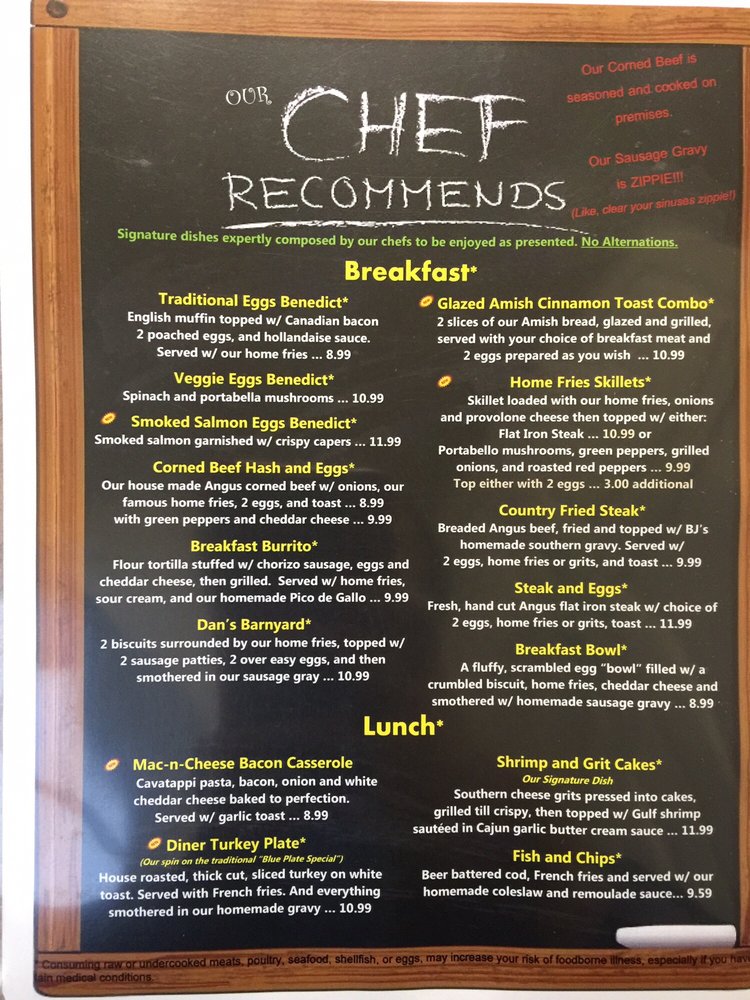 OUR
CHEF
RECOMMENDS
Our Corned Beef is
seasoned and cooked on
premises.
Our Sausage Gravy
is ZIPPIE!!!
(Like, clear your sinuses zippie!)
Signature dishes expertly composed by our chefs to be enjoyed as presented. No Alternations.
Breakfast*
Traditional Eggs Benedict*
English muffin topped w/ Canadian bacon
2 poached eggs, and hollandaise sauce.
Served w/ our home fries ... 8.99
Veggie Eggs Benedict*
Spinach and portabella mushrooms ... 10.99
Smoked Salmon Eggs Benedict*
Smoked salmon garnished w/ crispy capers ... 11.99
Corned Beef Hash and Eggs*
Our house made Angus corned beef w/ onions, our
famous home fries, 2 eggs, and toast ... 8.99
with green peppers and cheddar cheese ... 9.99
Breakfast Burrito*
Flour tortilla stuffed w/ chorizo sausage, eggs and
cheddar cheese, then grilled. Served w/ home fries,
sour cream, and our homemade Pico de Gallo ... 9.99
Dan's Barnyard*
2 biscuits surrounded by our home fries, topped w/
2 sausage patties, 2 over easy eggs, and then
smothered in our sausage gray ... 10.99
Glazed Amish Cinnamon Toast Combo*
2 slices of our Amish bread, glazed and grilled,
served with your choice of breakfast meat and
2 eggs prepared as you wish ... 10.99
Home Fries Skillets*
Skillet loaded with our home fries, onions
and provolone cheese then topped w/ either:
Flat Iron Steak ... 10.99 or
Portabello mushrooms, green peppers, grilled
onions, and roasted red peppers ... 9.99
Top either with 2 eggs ... 3.00 additional
Country Fried Steak*
Breaded Angus beef, fried and topped w/ BJ's
homemade southern gravy. Served w/
2 eggs, home fries or grits, and toast ... 9.99
Steak and Eggs*
Fresh, hand cut Angus flat iron steak w/ choice of
2 eggs, home fries or grits, toast ... 11.99
Breakfast Bowl*
A fluffy, scrambled egg "bowl" filled w/ a
crumbled biscuit, home fries, cheddar cheese and
smothered w/ homemade sausage gravy ... 8.99
Lunch*
Mac-n-Cheese Bacon Casserole
Cavatappi pasta, bacon, onion and white
cheddar cheese baked to perfection.
Served w/ garlic toast ... 8.99
Diner Turkey Plate*
(Our spin on the traditional "Blue Plate Special")
House roasted, thick cut, sliced turkey on white
toast. Served with French fries. And everything
smothered in our homemade gravy ... 10.99
Shrimp and Grit Cakes*
Our Signature Dish
Southern cheese grits pressed into cakes,
grilled till crispy, then topped w/ Gulf shrimp
sautéed in Cajun garlic butter cream sauce ... 11.99
Fish and Chips*
Beer battered cod, French fries and served w/ our
homemade coleslaw and remoulade sauce... 9.59
* Consuming raw or undercooked meats, poultry, seafood, shellfish, or eggs, may increase your risk of foodborne illness, especially if you have
medical conditions.